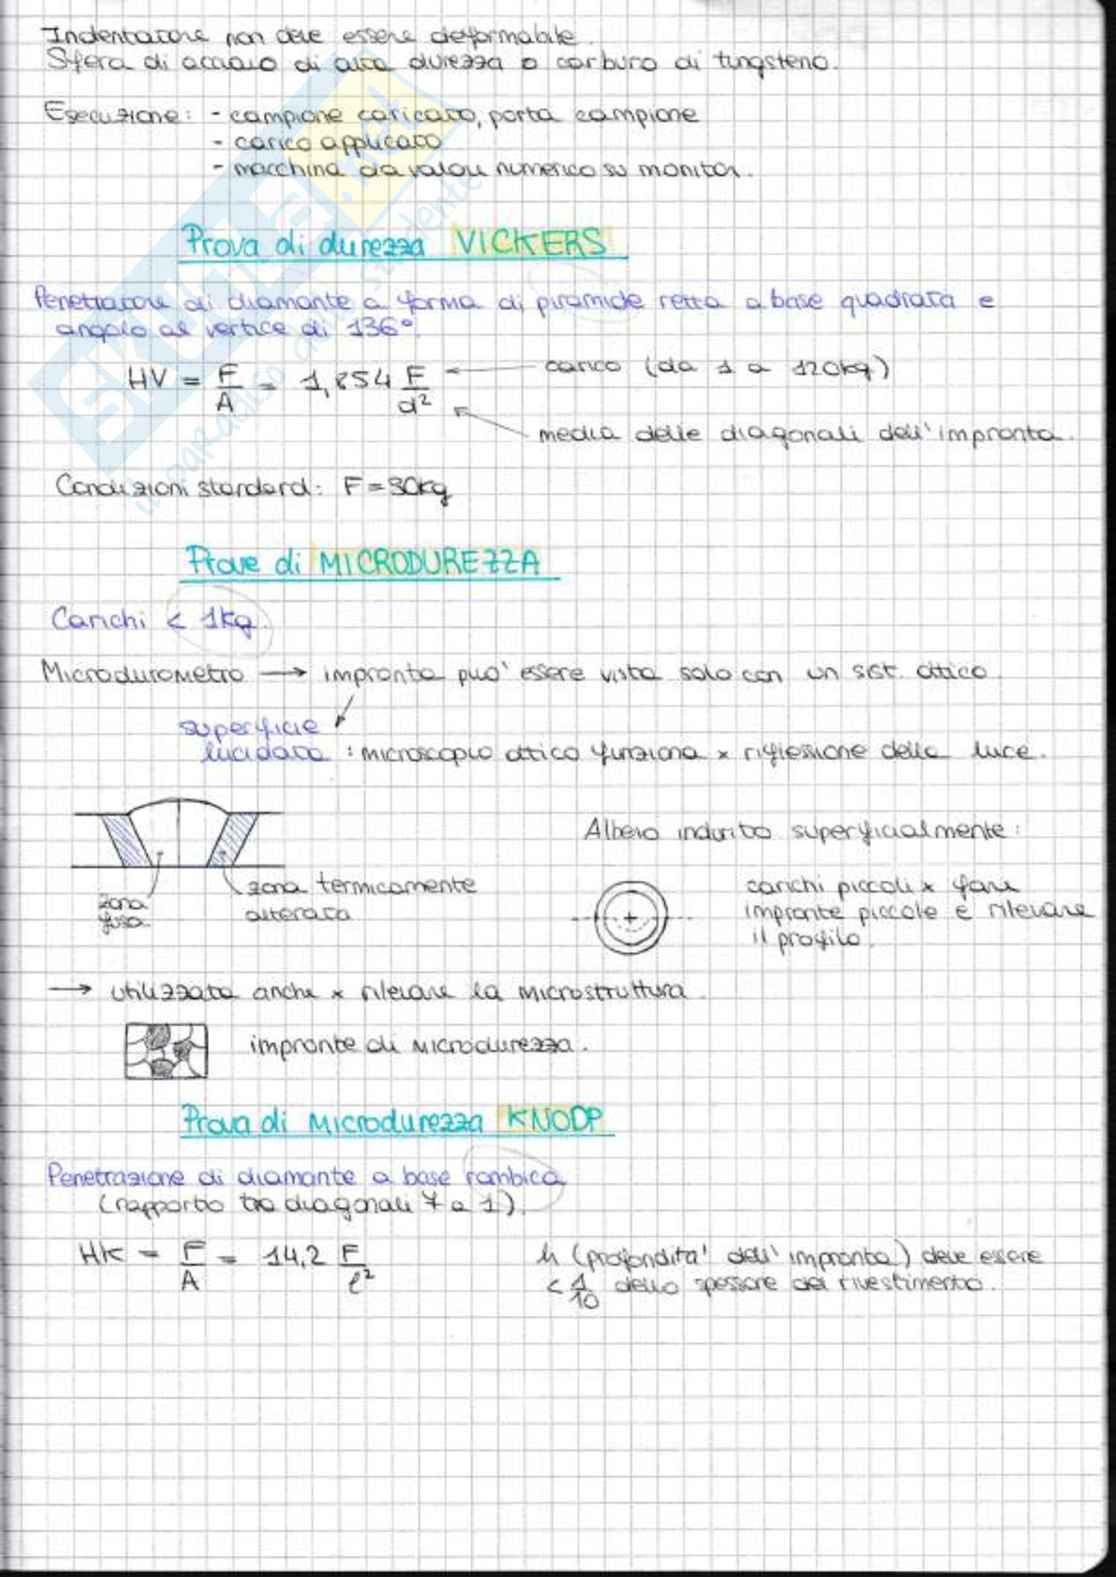 Indentatore non deve essere deformabile.
Sfera di acciaio di alta durezza o carburo di tungsteno.
Esecuzione: - campione caricato, porta campione
- carico applicato
- macchina da valori numerico su monitor.
Prova di durezza VICKERS
Penetratore di diamante a forma di piramide retta a base quadrata e
angolo al vertice di 136°.
HV = F/A = 1,854 F/d² ← carico (da 1 a 120kg)
media delle diagonali dell'impronta.
Condizioni standard: F = 30kg
Prove di MICRODUREZZA
Carichi < 1kg.
Microdurometro → impronta puo' essere vista solo con un sist. ottico.
superficie
lucidata : microscopio ottico funziona x riflessione della luce.
Albero indurito superficialmente:
zona termicamente
alterata
zona
fusa
carichi piccoli x fare
impronte piccole e rilevare
il profilo.
→ utilizzata anche x rilevare la microstruttura.
impronte di microdurezza.
Prova di Microdurezza KNOOP
Penetrazione di diamante a base rombica
(rapporto tra diagonali 7 a 1).
HK = F/A = 14,2 F/l²
h (profondita' dell'impronta) deve essere
< 1/10 dello spessore del rivestimento.
SKUOLA.net